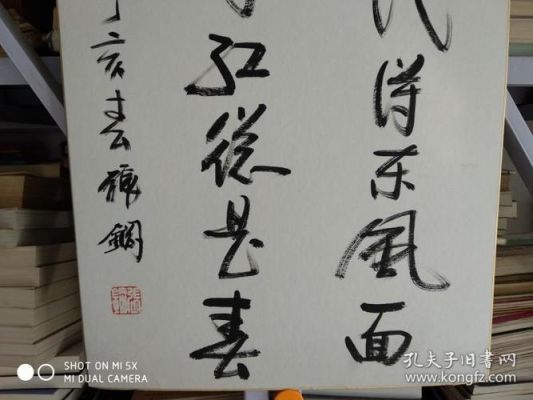 得东風面
红總是春
亥春張鋼
SHOT ON MI 5X
MI DUAL CAMERA
孔夫子旧书网
www.kongfz.com